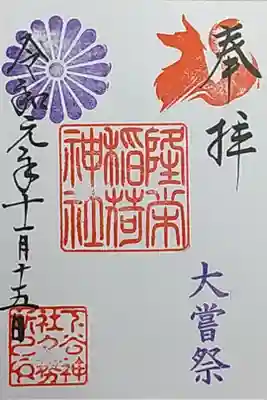 奉拝
大嘗祭
隆栄
稲荷
神社
令和元年十一月十五日
下谷神
社社務
所之印